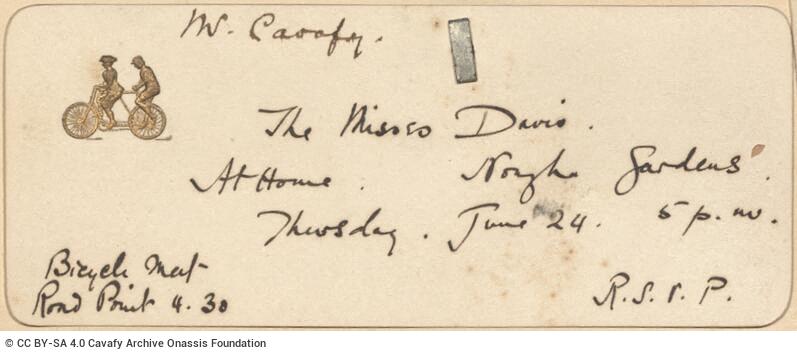 Mr. Cavafy.
The Misses Davis.
At Home. Nouzha Gardens.
Thursday. June 24. 5 p.m.
Bicycle Meet
Rond Point 4.30
R.S.V.P.
© CC BY-SA 4.0 Cavafy Archive Onassis Foundation